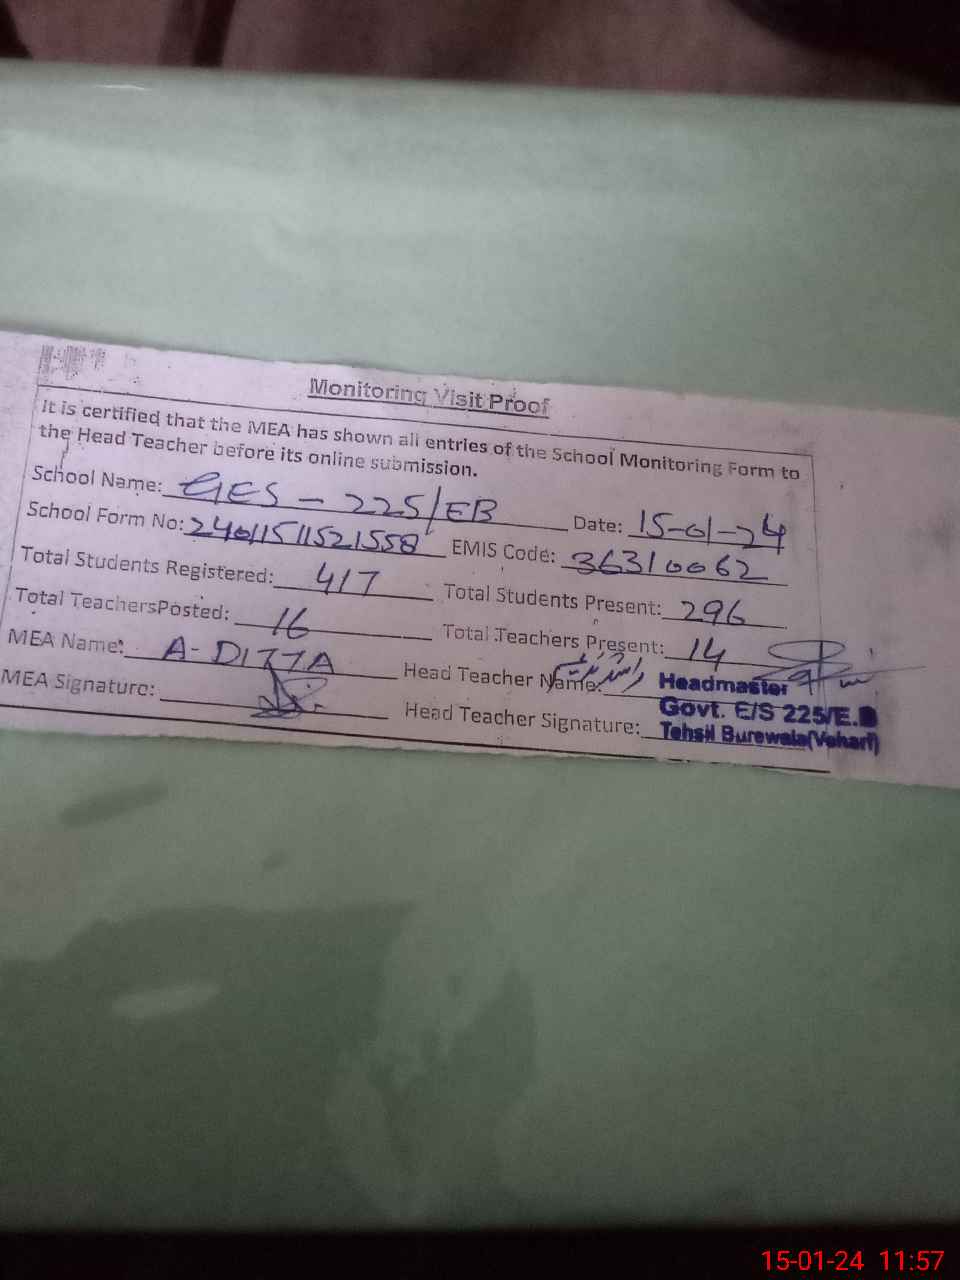 Monitoring Visit Proof
It is certified that the MEA has shown all entries of the School Monitoring Form to
the Head Teacher before its online submission.
School Name: GES - 225/EB Date: 15-01-24
School Form No: 24011511521558 EMIS Code: 36310062
Total Students Registered: 417 Total Students Present: 296
Total TeachersPosted: 16 Total Teachers Present: 14
MEA Name: A-DITTA Head Teacher Name:
Headmaster
MEA Signature: Head Teacher Signature:
Govt. E/S 225/E.B
Tehsil Burewala(Vehari)
15-01-24 11:57